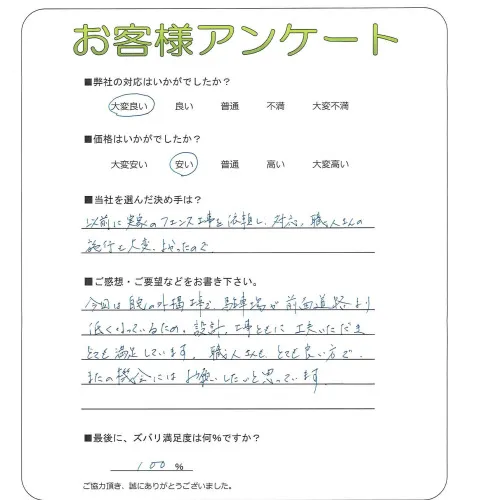 お客様アンケート
■弊社の対応はいかがでしたか？
大変良い 良い 普通 不満 大変不満
■価格はいかがでしたか？
大変安い 安い 普通 高い 大変高い
■当社を選んだ決め手は？
以前に実家のフェンス工事を依頼し、対応、職人さんの
施行も大変よかったので
■ご感想・ご要望などをお書き下さい。
今回は自宅の外構工事で、駐車場が前面道路より
低くなっているため、設計、工事ともに工夫いただき
とても満足しています。職人さんも、とても良い方で、
またの機会にはお願いしたいと思っています
■最後に、ズバリ満足度は何％ですか？
100 ％
ご協力頂き、誠にありがとうございました。